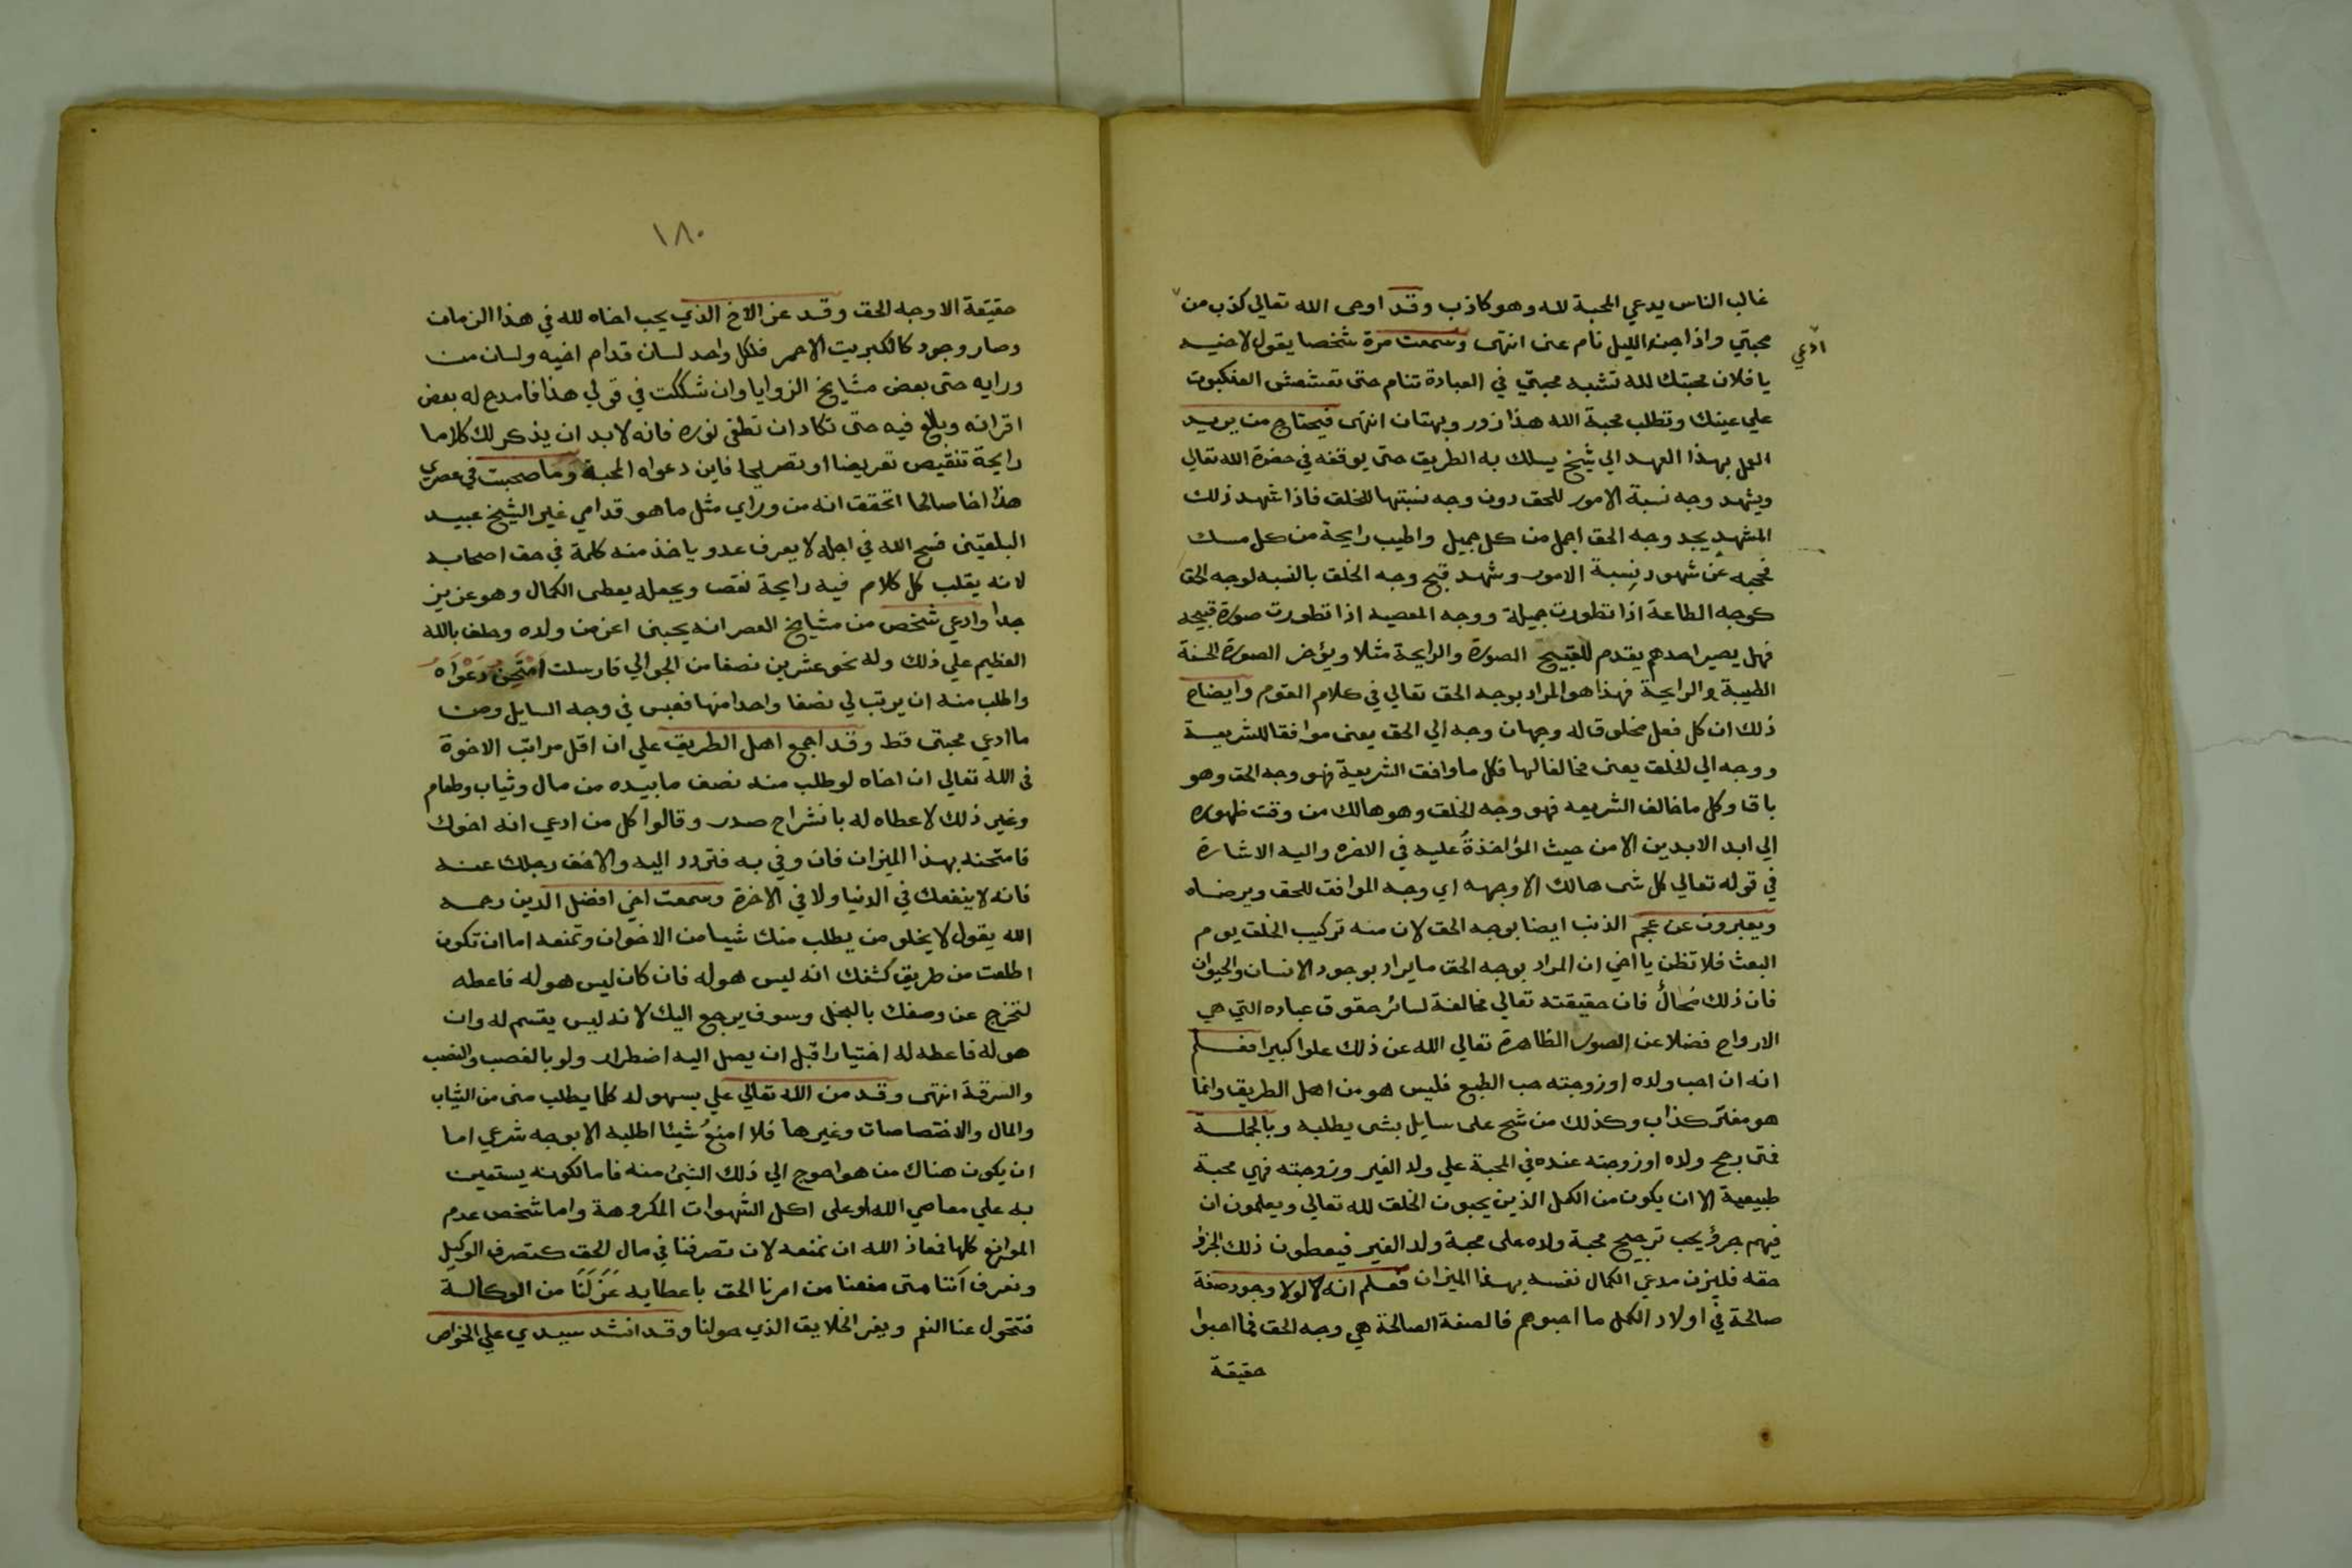 غالب الناس يدعي المحبة لله وهو كاذب وقد اوحى الله تعالي كذب من
ادعي
محبتي واذا جنه الليل نام عنى انتهى وسمعت مرة شخصا يقول لاخيه
يا فلان محبتك لله تشبه محبتي في العبادة تنام حتى تعشعش العنكبوت
علي عينك وتطلب محبة الله هذا زور وبهتان انتهى فيحتاج من يريد
العمل بهذا العهد الي شيخ يسلك به الطريق حتى يوقفه في حضرة الله تعالى
ويشهد وجه نسبة الامور للحق دون وجه نسبتها للخلق فاذا شهد ذلك
المشهد يجد وجه الحق اجمل من كل جميل واطيب رايحة من كل مسك
فحجبه عن شهود نسبة الامور وشهد قبح وجه الخلق بالنسبه لوجه الحق
كوجه الطاعة اذا تطورت جميلة ووجه المعصيه اذا تطورت صورة قبيحه
فهل يصير احدهم يقدم للقبيح الصورة والرايحة مثلا ويؤخر الصورة الحسنة
الطيبة والرايحة فهذا هو المراد بوجه الحق تعالي في كلام القوم وايضاح
ذلك ان كل فعل مخلوق له وجهان وجه الي الحق يعنى موافقا للشريعة
ووجه الي الخلق يعنى مخالفا لها فكل ما وافق الشريعة فهو وجه الحق وهو
باقا وكل ما خالف الشريعه فهو وجه الخلق وهو هالك من وقت ظهوره
الي ابد الابدين الا من حيث المؤاخذة عليه في الاخره واليه الاشارة
في قوله تعالي كل شى هالك الا وجهه اي وجه الموافق للحق ويرضاه
ويعبرون عن عجم الذنب ايضا بوجه الحق لان منه تركيب الخلق يوم
البعث فلا تظن يا اخي ان المراد بوجه الحق ما يراد بوجود الانسان والحيوان
فان ذلك محال فان حقيقته تعالي مخالفة لسائر حقوق عباده التي هي
الارواح فضلا عن الصور الظاهرة تعالي الله عن ذلك علوا كبيرا فعلم
انه ان احب ولده او زوجته حب الطبع فليس هو من اهل الطريق وانما
هو مفتر كذاب وكذلك من شح على سايل بشى يطلبه وبالجملة
فمتى رجح ولده او زوجته عنده في المحبة علي ولد الغير وزوجته فهي محبة
طبيعية الا ان يكون من الكمل الذين يحبون الخلق لله تعالي ويعلمون ان
فيهم جزؤ يحب ترجيح محبة ولاده على محبة ولد الغير فيعطون ذلك الجزؤ
حقه فليزن مدعي الكمال نفسه بهذا الميزان فعلم انه لولا وجود صفة
صالحة في اولاد الكمل ما احبوهم فالصفة الصالحة هي وجه الحق فما احبوا
حقيقة
١٨٠
حقيقة الا وجه الحق وقد عز الاخ الذي يحب اخاه لله في هذا الزمان
وصار وجود كالكبريت الاحمر فلكل واحد لسان قدام اخيه ولسان من
ورايه حتى بعض مشايخ الزوايا وان شككت في قولي هذا فامدح له بعض
اقرانه وبالغ فيه حتى تكاد ان تطفى نوره فانه لا بد ان يذكر لك كلاما
رايحة تنقيص تعريضا او تصريحا فاين دعواه المحبة وما صحبت في عصري
هذا اخا صالحا اتحققت انه من وراي مثل ما هو قدامي غير الشيخ عبيد
البلقينى فسح الله في اجله لا يعرف عدو ياخذ منه كلمة في حق اصحابه
لانه يقلب كل كلام فيه رايحة نقص ويجعله يعطى الكمال وهو عزيز
جدا وادعي شخص من مشايخ العصر انه يحبنى اعز من ولده وحلف بالله
العظيم علي ذلك وله نحو عشرين نصفا من الجوالي فارسلت امتحن دعواه
واطلب منه ان يرتب لي نصفا واحدا منها فعبس في وجه السايل ومن
ما ادعي محبتى قط وقد اجمع اهل الطريق علي ان اقل مراتب الاخوة
في الله تعالي ان اخاه لو طلب منه نصف ما بيده من مال وثياب وطعام
وغير ذلك لاعطاه له بانشراح صدر وقالوا كل من ادعي انه اخوك
فامتحنه بهذا الميزان فان وفي به فتردد اليه والا فخف رجلك عنه
فانه لا ينفعك في الدنيا ولا في الاخرة وسمعت اخي افضل الدين رحمه
الله يقول لا يخلو من يطلب منك شيا من الاخوان وتمنعه اما ان تكون
اطلعت من طريق كشفك انه ليس هو له فان كان ليس هو له فاعطه
لتخرج عن وصفك بالبخل وسوف يرجع اليك لانه ليس يقسم له وان
هو له فاعطه له اختيارا قبل ان يصل اليه اضطرار ولو بالغصب والنصب
والسرقة انتهى وقد من الله تعالي علي بسهولة كلما يطلب منى من الثياب
والمال والاختصاصات وغيرها فلا امنع شيئا اطلبه الا بوجه شرعي اما
ان يكون هناك من هو احوج الي ذلك الشيئ منه فاما لكونه يستعين
به علي معاصي الله او على اكل الشهوات المكروهة واما شخص عدم
الموانع كلها فمعاذ الله ان نمنعه لان تصرفنا في مال الحق كتصرف الوكيل
ونعرف اننا متى منعنا من امرنا الحق باعطايه عزلنا من الوكالة
فتتحول عنا النعم وينفر الخلايق الذي حولنا وقد انشد سيدي علي الخواص